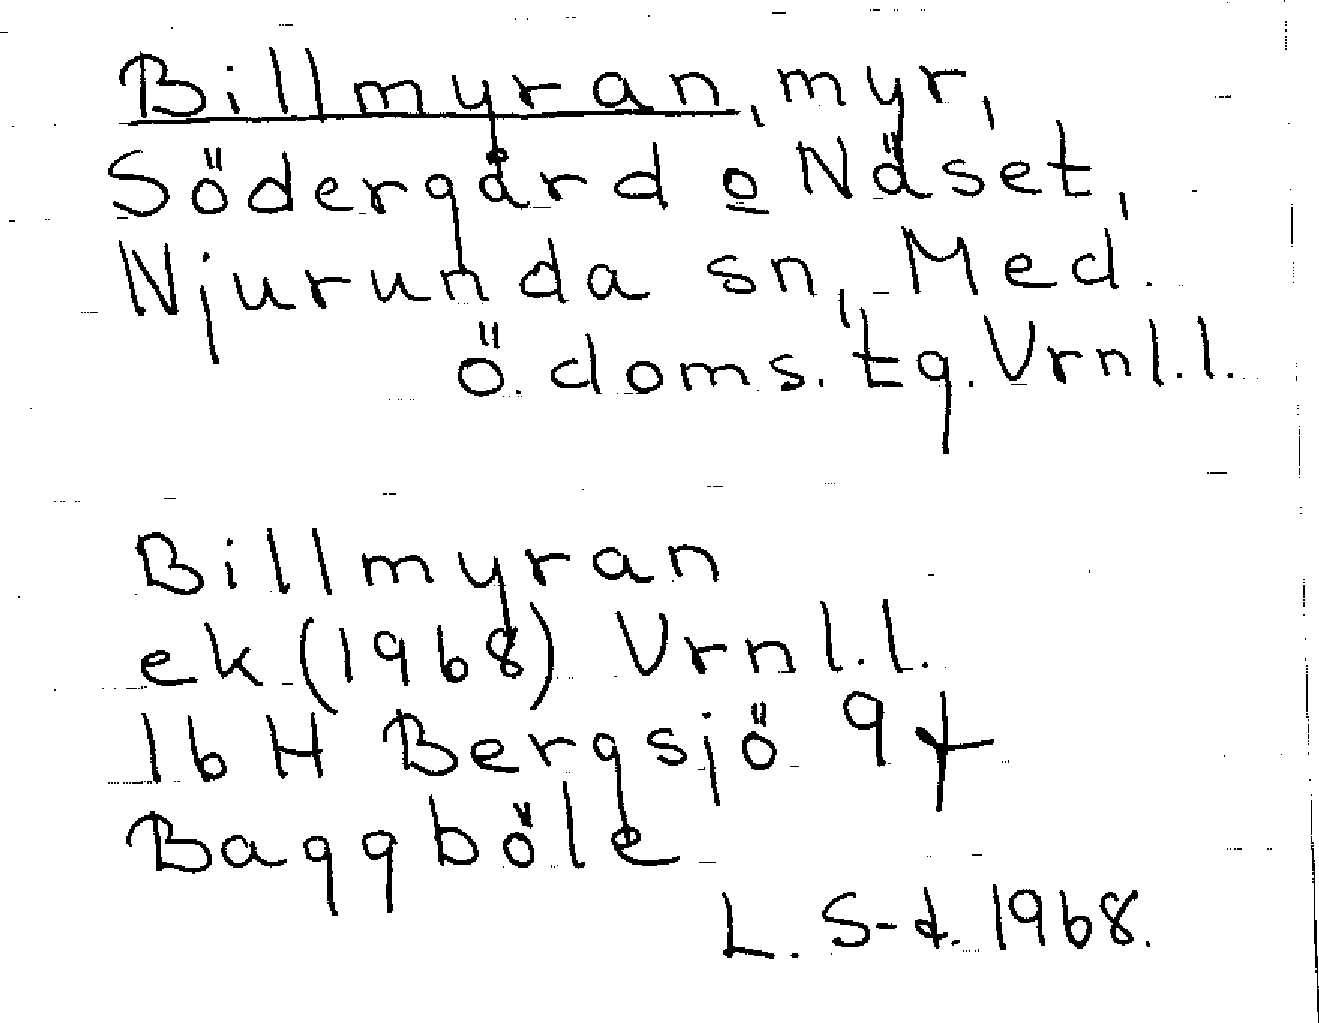 Billmyran, myr,
Södergård o Näset,
Njurunda sn, Med.
ö. doms. tg. Vrnl.l.
Billmyran
ek (1968) Vrnl.l.
16 H Bergsjö 9 f
Baggböle
L. S-d. 1968.